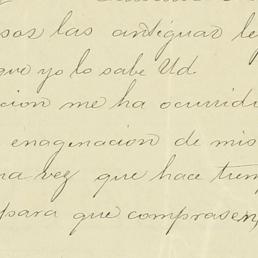 sos las antiguas le
que yo lo sabe Ud.
cion me ha ocurrido
enagenacion de mis
na vez que hace tiem
para que comprasen,